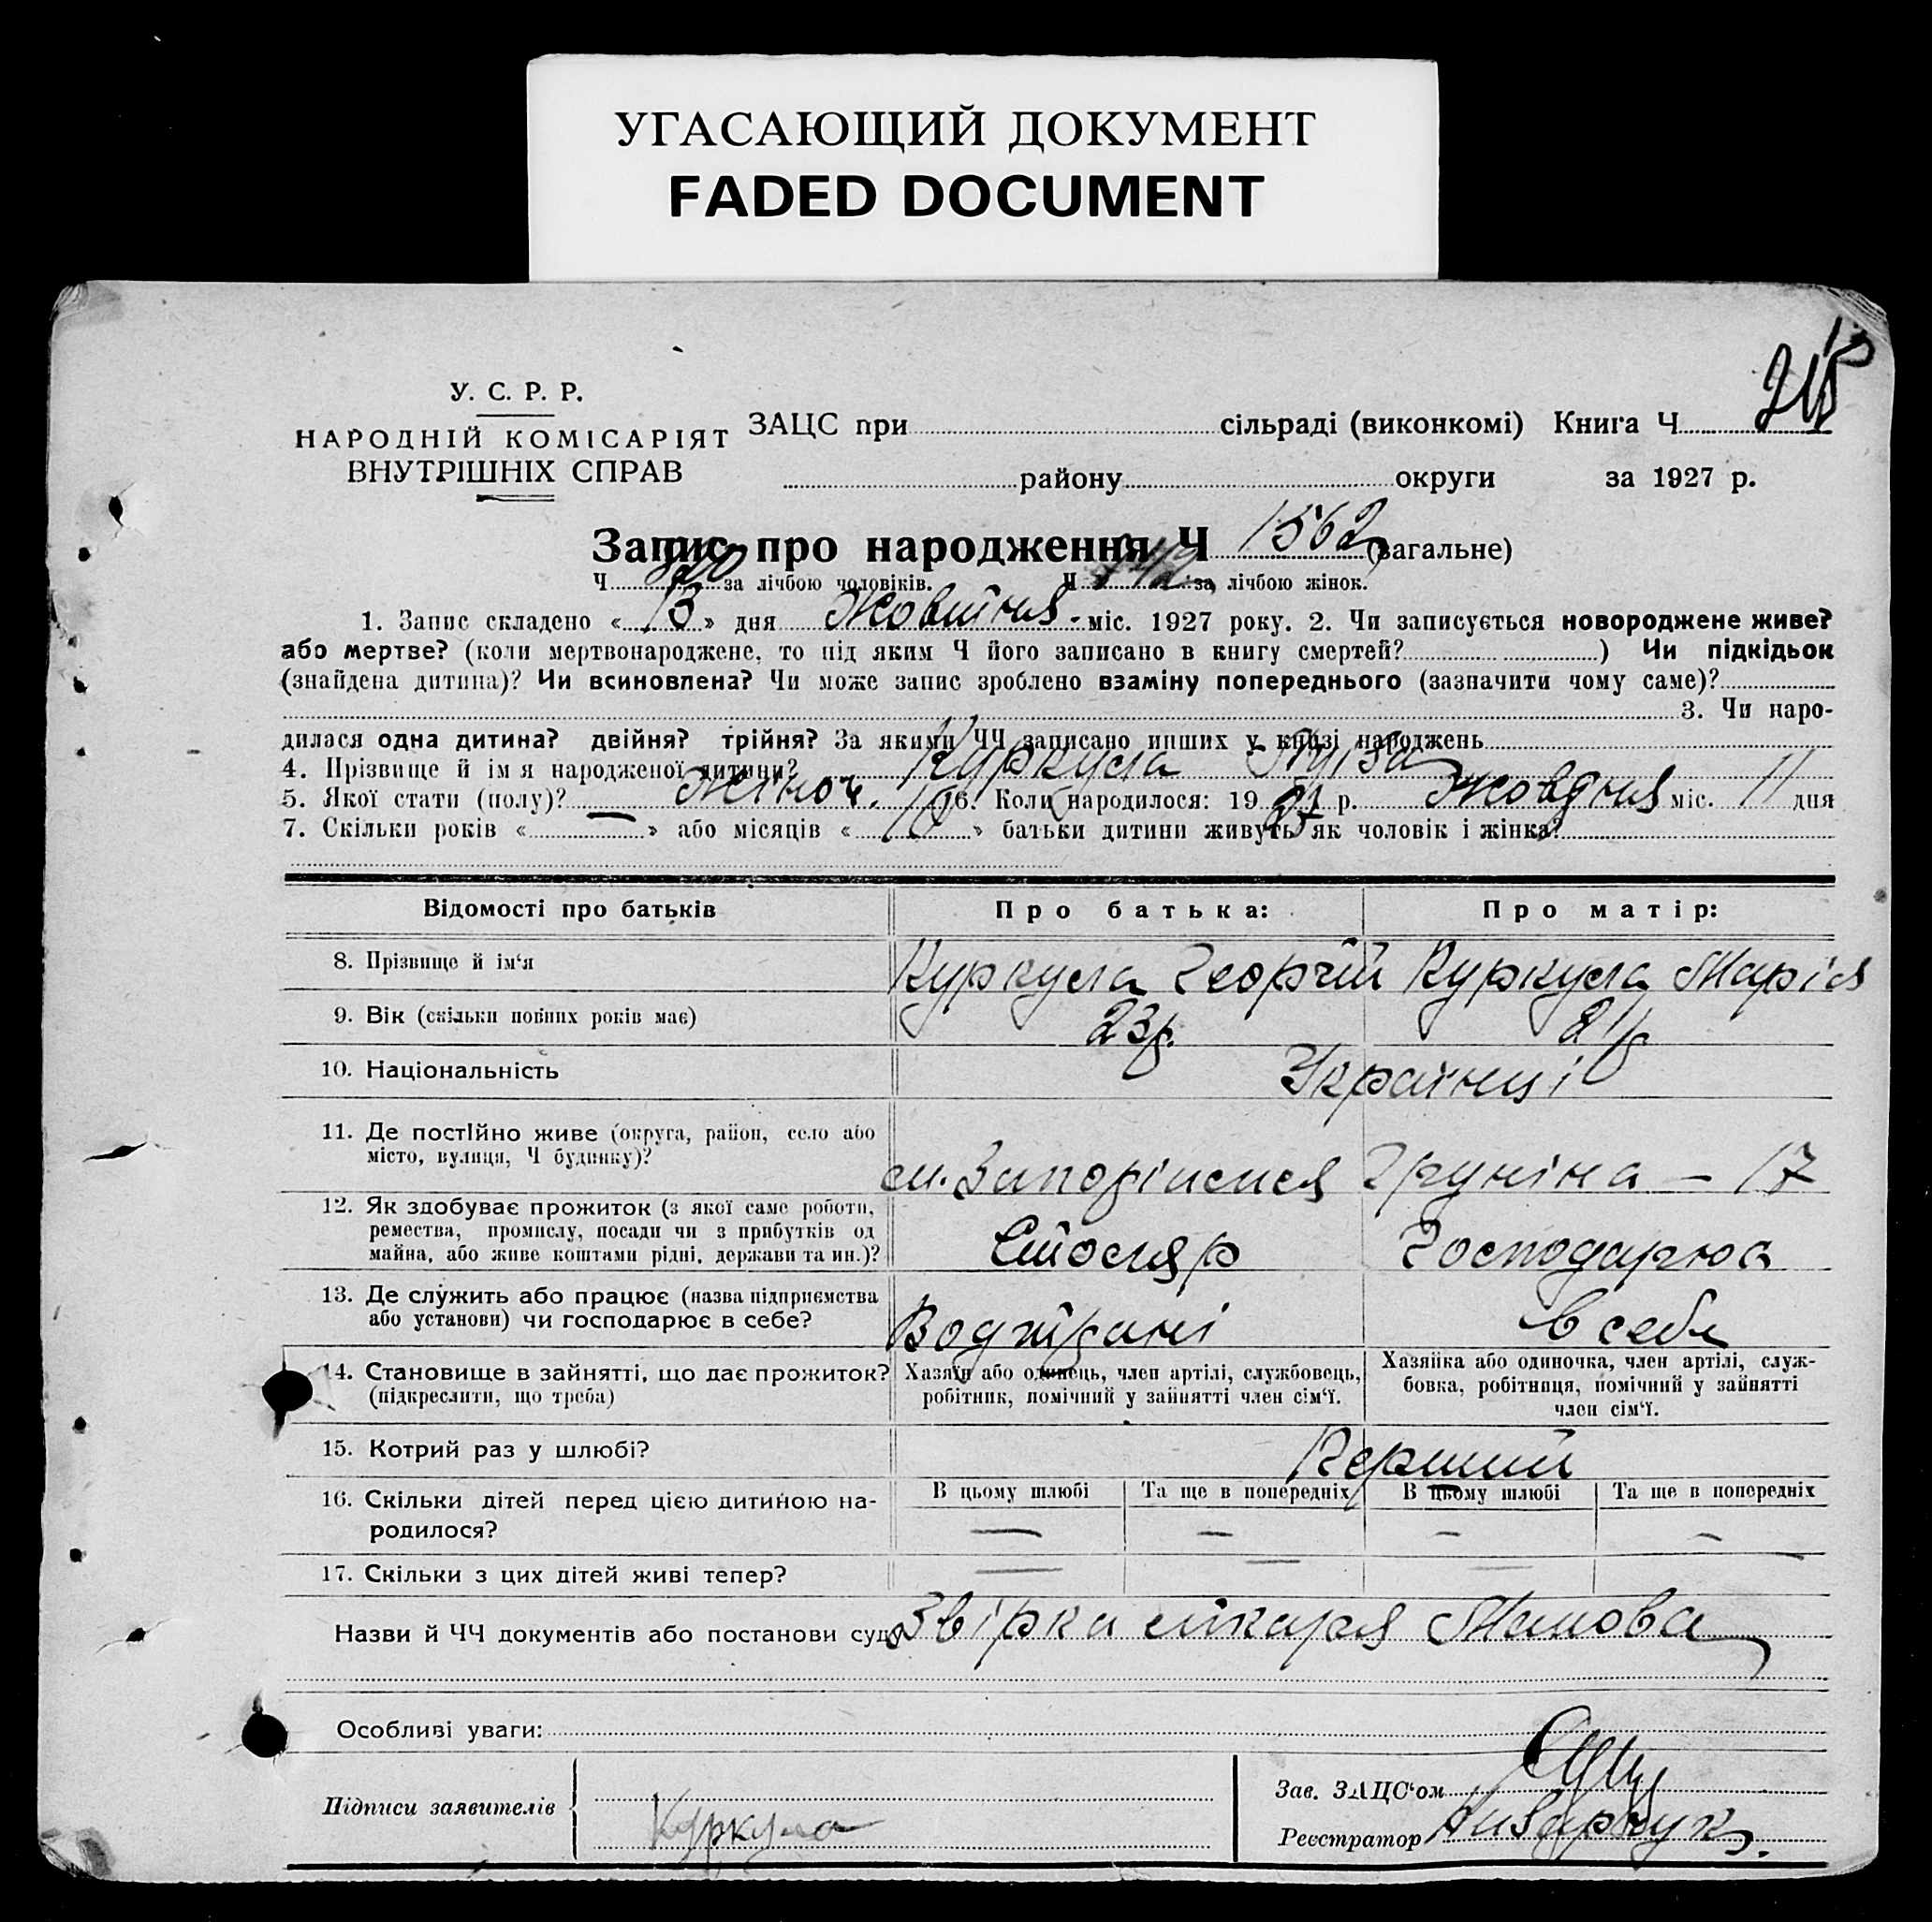 УГАСАЮЩИЙ ДОКУМЕНТ
FADED DOCUMENT
У. С. Р. Р.
НАРОДНІЙ КОМІСАРІЯТ
ВНУТРІШНІХ СПРАВ
ЗАЦС при сільраді (виконкомі) Книга Ч
району округи за 1927 р.
Запис про народження Ч 1562 (загальне)
Ч 820 за лічбою чоловіків. Ч 742 за лічбою жінок.
1. Запис складено « 13 » дня Жовтня міс. 1927 року. 2. Чи записується новороджене живе?
або мертве? (коли мертвонароджене, то під яким Ч його записано в книгу смертей? ) Чи підкідьок
(знайдена дитина)? Чи всиновлена? Чи може запис зроблено взаміну попереднього (зазначити чому саме)?
3. Чи наро-
дилася одна дитина? двійня? трійня? За якими ЧЧ записано инших у книзі народжень
4. Прізвище й ім я народженої дитини? Куркула Луїза
5. Якої стати (полу)? Жіноч. 6. Коли народилося: 19 27 р. Жовдня міс. 11 дня
7. Скільки років « — » або місяців « 10 » батьки дитини живуть як чоловік і жінка?
Відомості про батьків Про батька: Про матір:
8. Прізвище й ім‘я Куркула Георгій Куркула Марія
9. Вік (скільки повних років має) 23р. 21р
10. Національність Українці
11. Де постійно живе (округа, район, село або
місто, вулиця, Ч будинку)? м. Запоріжжя Груніна — 17
12. Як здобуває прожиток (з якої саме роботи,
ремества, промислу, посади чи з прибутків од
майна, або живе коштами рідні, держави та ин.)? Столяр Господарює
13. Де служить або працює (назва підприємства
або установи) чи господарює в себе? в себе
14. Становище в зайнятті, що дає прожиток?
(підкреслити, що треба)
Хазяїн або одинець, член артілі, службовець,
робітник, помічний у зайнятті член сім‘ї.
Хазяйка або одиночка, член артілі, служ-
бовка, робітниця, помічний у зайнятті
член сім‘ї.
15. Котрий раз у шлюбі? Перший
16. Скільки дітей перед цією дитиною на-
родилося?
В цьому шлюбі Та ще в попередніх В цьому шлюбі Та ще в попередніх
— — — —
17. Скільки з цих дітей живі тепер? — — — —
Назви й ЧЧ документів або постанови суду Звірка лікаря
Особливі уваги:
Підписи заявителів Куркула
Зав. ЗАЦС‘ом
Реєстратор